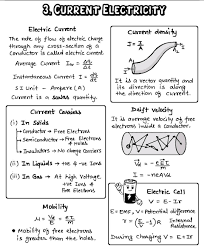 3. CURRENT ELECTRICITY
Electric Current
The rate of flow of electric charge
through any cross-section of a
Conductor is called electric current.
Average Current Iav = Δq/Δt
Instantaneous Current I = dq/dt
SI Unit - Ampere (A)
Current is a scalar quantity.
Current density
J = I/A
It is a vector quantity and
its direction is along
the direction of current.
Current Carriers
(i) In Solids
Conductor → Free Electrons
Semiconductor → Free Electrons
& Holes
Insulators → No Charge Carriers
(ii) In Liquids → +ve & -ve Ions
(iii) In Gas → At high Voltage
+ve Ions &
Free Electrons
Drift velocity
It is average velocity of free
electrons inside a conductor.
I = -neAVd
Mobility
Mobility of free electrons
is greater than the holes.
Electric Cell
V = E - Ir
E = EMF, V = Potential difference
r = (E/V - 1) R
Internal
Resistance
During charging V = E + Ir